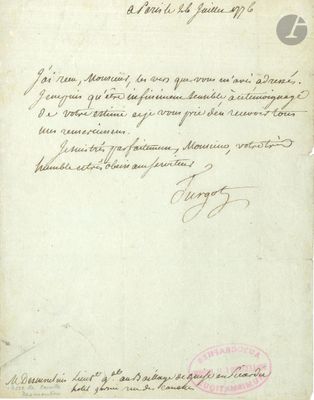 à Paris le 26 Juillet 1776
J'ai reçu, Monsieur, les vers que vous m'avés adressé.
Je ne puis qu'être infiniment sensible à ce témoignage
de votre estime et je vous prie d'en recevoir tous
mes remerciemens.
Je suis très parfaitement, Monsieur, votre très
humble et très obéissant serviteur
Turgot
M. Desmoulins Lieut. g.al au Bailliage de Guise en Picardie
hotel garni rue de